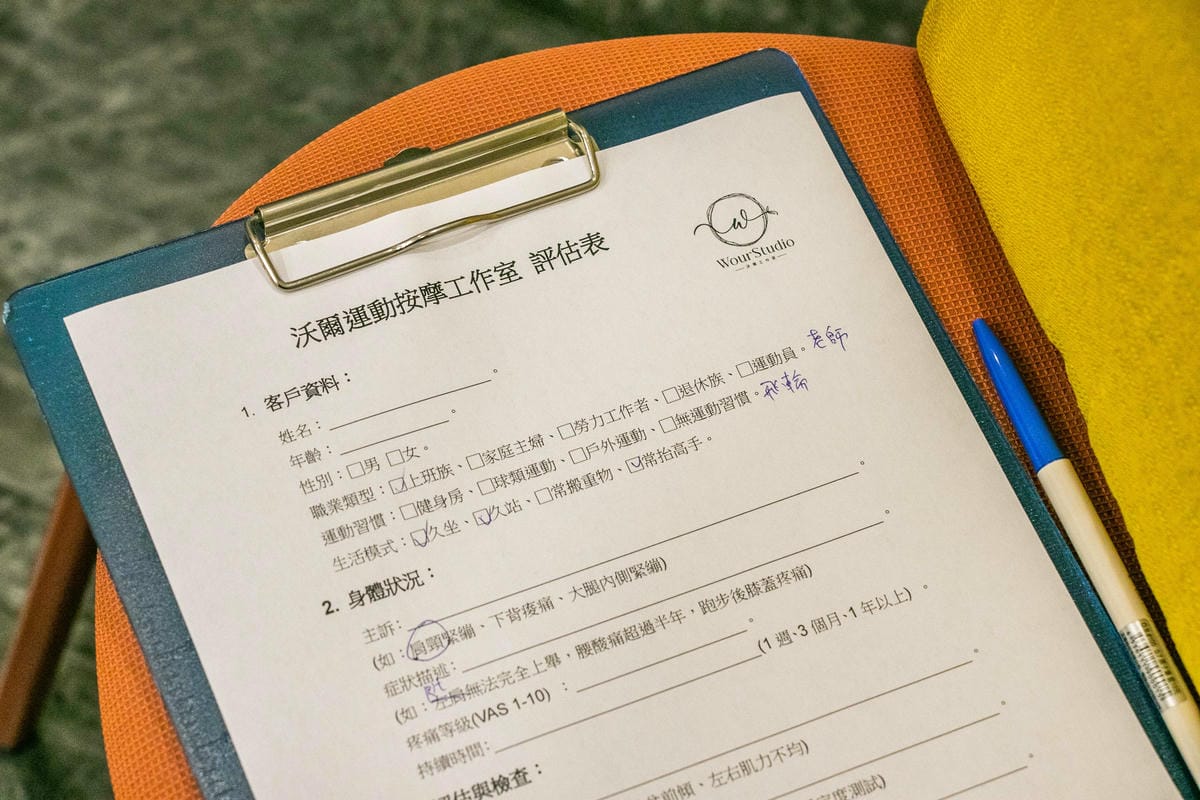 WourStudio
沃爾工作室
沃爾運動按摩工作室 評估表
1. 客戶資料：
姓名：。
年齡：。
性別：□男 □女。
職業類型：☑上班族、□家庭主婦、□勞力工作者、□退休族、□運動員。老師
運動習慣：□健身房、□球類運動、□戶外運動、□無運動習慣。飛輪
生活模式：☑久坐、☑久站、□常搬重物、☑常抬高手。
2. 身體狀況：
主訴：。
(如：肩頸緊繃、下背痠痛、大腿內側緊繃)
症狀描述：。
Rt
(如：左肩無法完全上舉，腰酸痛超過半年，跑步後膝蓋疼痛)
疼痛等級(VAS 1-10) ：。
持續時間：(1 週、3 個月、1 年以上) 。
評估與檢查：
前傾、左右肌力不均)
度測試)